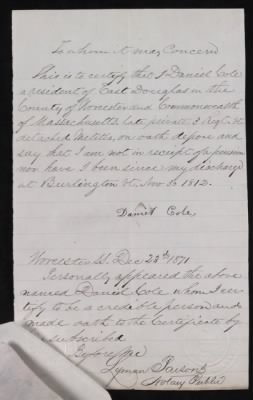 To whom it may Concern
This is to certify that I Daniel Cole
a resident of East Douglas in the
County of Worcester and Commonwealth
of Massachusetts late private 3 Regt
detached Militia, on oath depose and
say that I am not in receipt of a pension
nor have I been since my discharge
at Burlington Vt Nov 30 1812.
Daniel Cole
Worcester SS. Dec 22d 1871
Personally appeared the above
named Daniel Cole whom I cer-
tify to be a credible person and
made oath to the Certificate by
him subscribed
Before me
Lyman Parsons
Notary Public